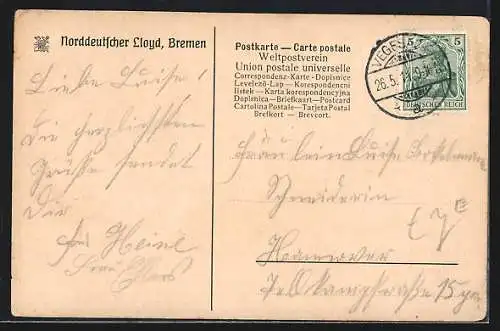 Norddeutscher Lloyd, Bremen
Postkarte — Carte postale
Weltpostverein
Union postale universelle
Correspondenz-Karte - Dopisnice
Levelező-Lap — Korespondenčni
listek — Karta korespondencyjna
Dopisnica — Briefkaart — Postcard
Cartolina Postale — Tarjeta Postal
Brefkort — Brevcort.
VEGESACK
26.5.
5
DEUTSCHES REICH
Liebe Luise!
Die herzlichsten
Grüße sendet
Dir
Heine
Fräulein Luise
Schneiderin
Hannover
Tellkampfstraße 15